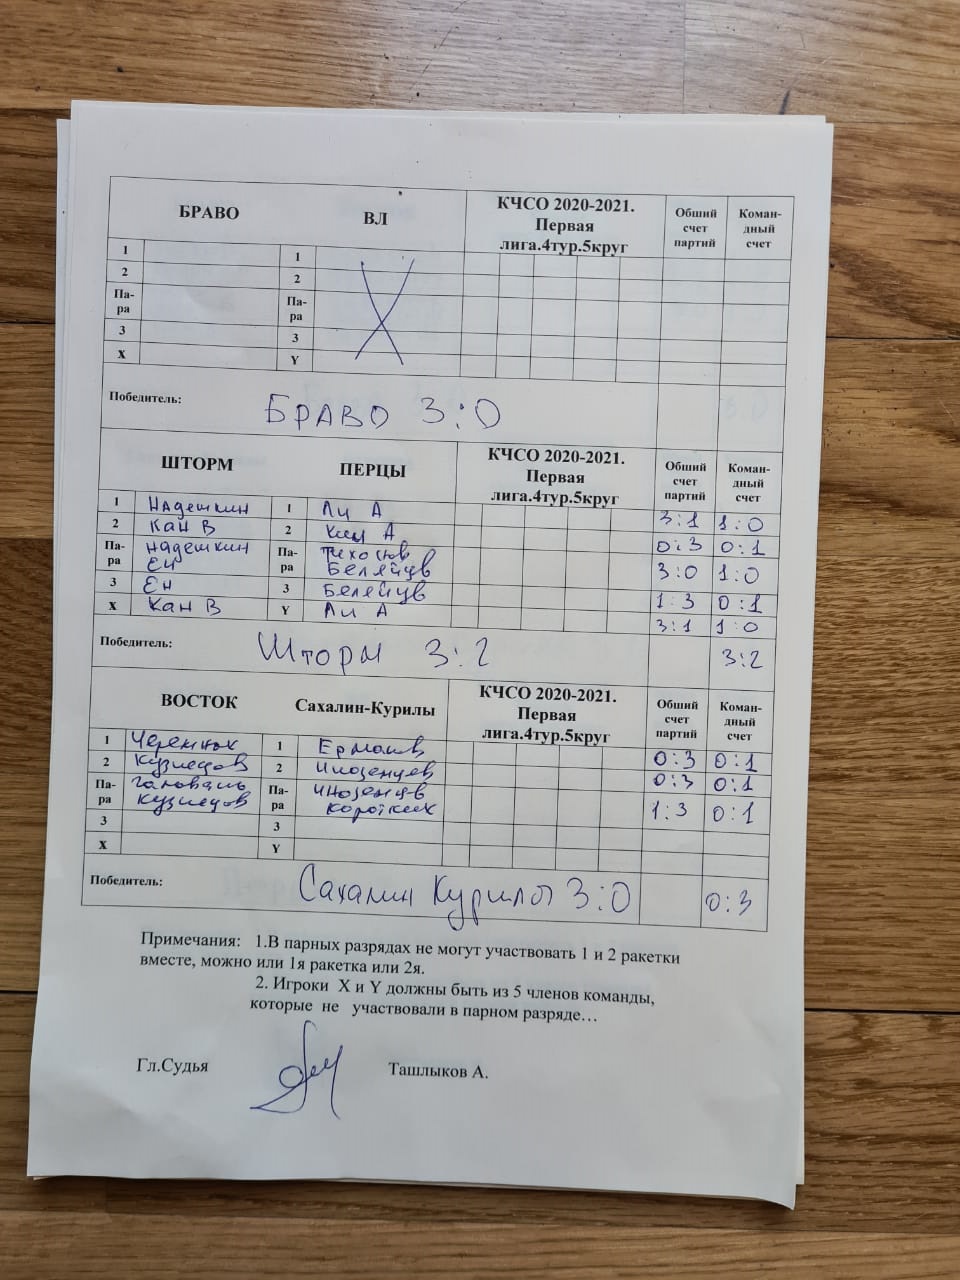 БРАВО ВЛ КЧСО 2020-2021. Первая лига.4тур.5круг Обший счет партий Коман-дный счет
1 1
2 2
Па-ра Па-ра
3 3
X Y
Победитель: БРАВО 3:0
ШТОРМ ПЕРЦЫ КЧСО 2020-2021. Первая лига.4тур.5круг Обший счет партий Коман-дный счет
1 Надешкин 1 Ли А 3:1 1:0
2 Кан В 2 Ким А 0:3 0:1
Па-ра Надешкин Ен Па-ра Беляйцув 3:0 1:0
3 Ен 3 Беляйцув 1:3 0:1
X Кан В Y Ли А 3:1 1:0
Победитель: Шторм 3:2 3:2
ВОСТОК Сахалин-Курилы КЧСО 2020-2021. Первая лига.4тур.5круг Обший счет партий Коман-дный счет
1 1 Ермаков 0:3 0:1
2 Кузнецов 2 Инозенцев 0:3 0:1
Па-ра Кузнецов Па-ра Инозенцев Коротких 1:3 0:1
3 3
X Y
Победитель: Сахалин Курилы 3:0 0:3
Примечания: 1.В парных разрядах не могут участвовать 1 и 2 ракетки
вместе, можно или 1я ракетка или 2я.
2. Игроки X и Y должны быть из 5 членов команды,
которые не участвовали в парном разряде…
Гл.Судья Ташлыков А.